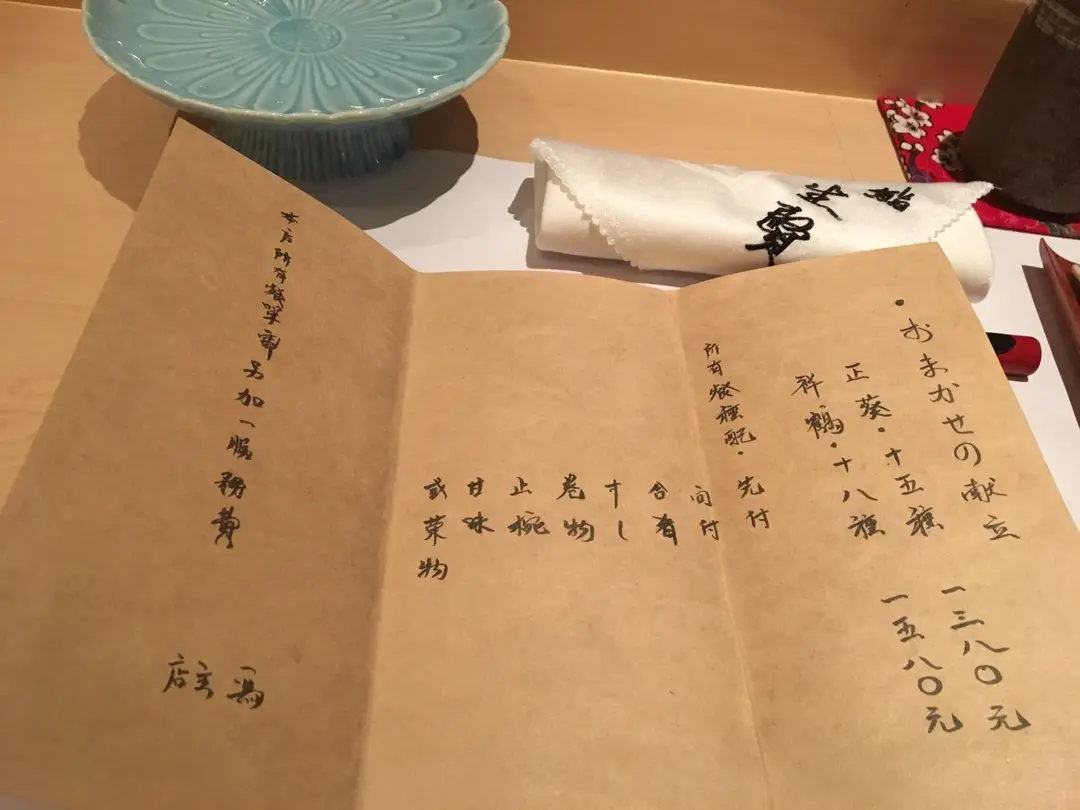 ・おまかせの献立
正葵・十五種 一三八〇元
祥鶴・十八種 一五八〇元
所有餐種配・先付
向付
合肴
すし
卷物
止椀
甘味
或菓物
本店所有餐單需另加一服務費
店主 馮
鮨